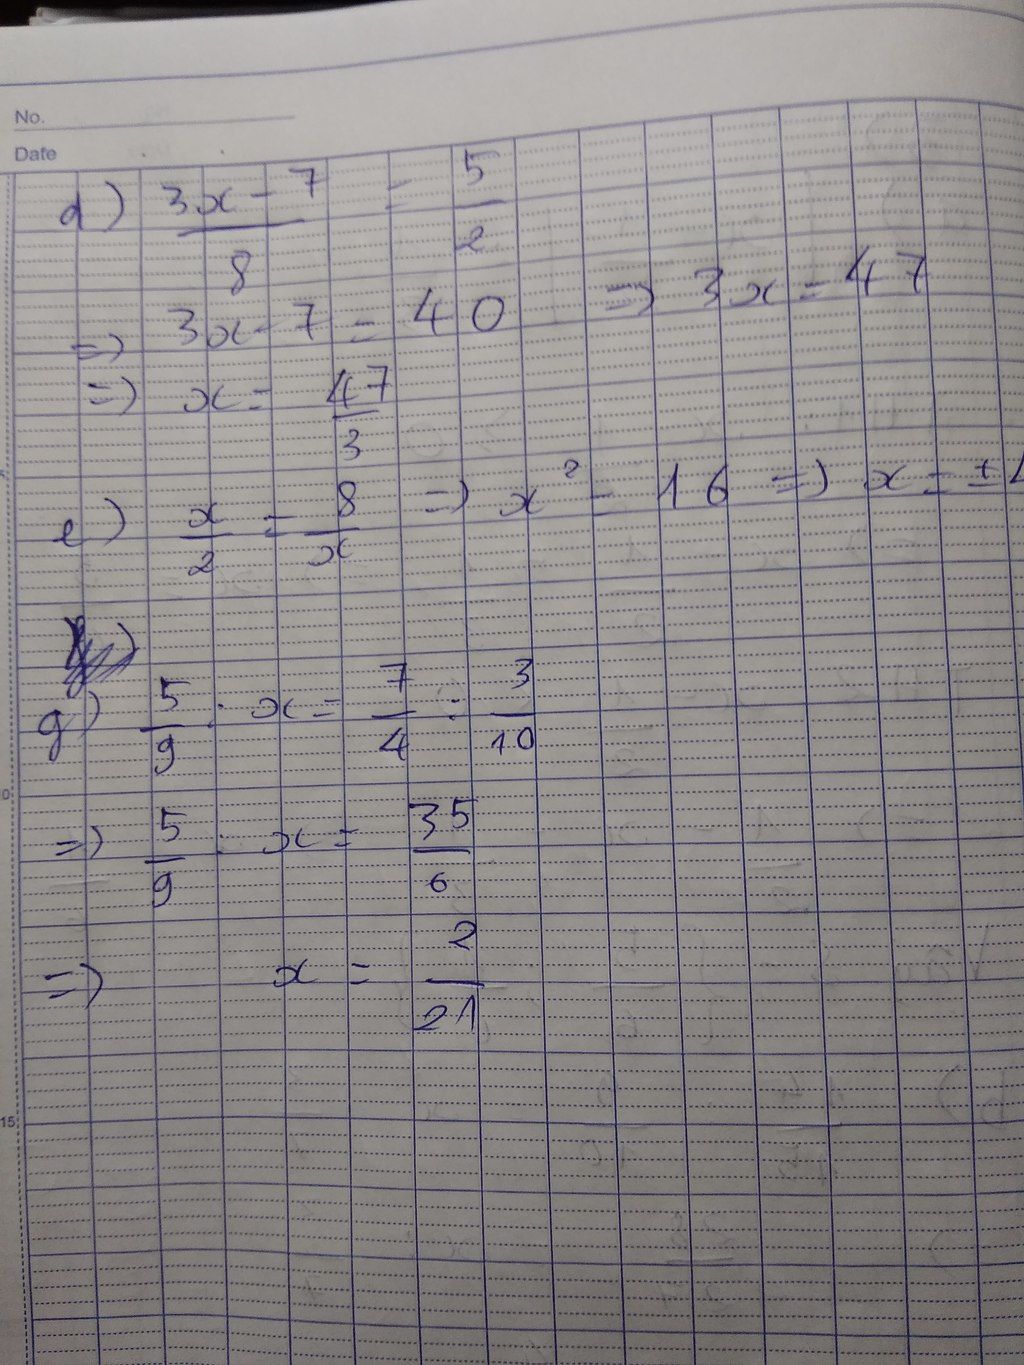 No.
Date
d) (3x - 7)/8 = 5/2
=) 3x - 7 = 40 =) 3x = 47
=) x = 47/3
e) x/2 = 8/x =) x² = 16 =) x = ±4
g) 5/9 : x = 7/4 : 3/10
=) 5/9 : x = 35/6
=) x = 2/21
10
15